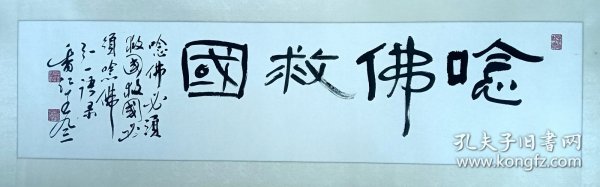 唸佛救國
唸佛必須
救國救國必
須唸佛
弘一語录
孔夫子旧书网
www.kongfz.com